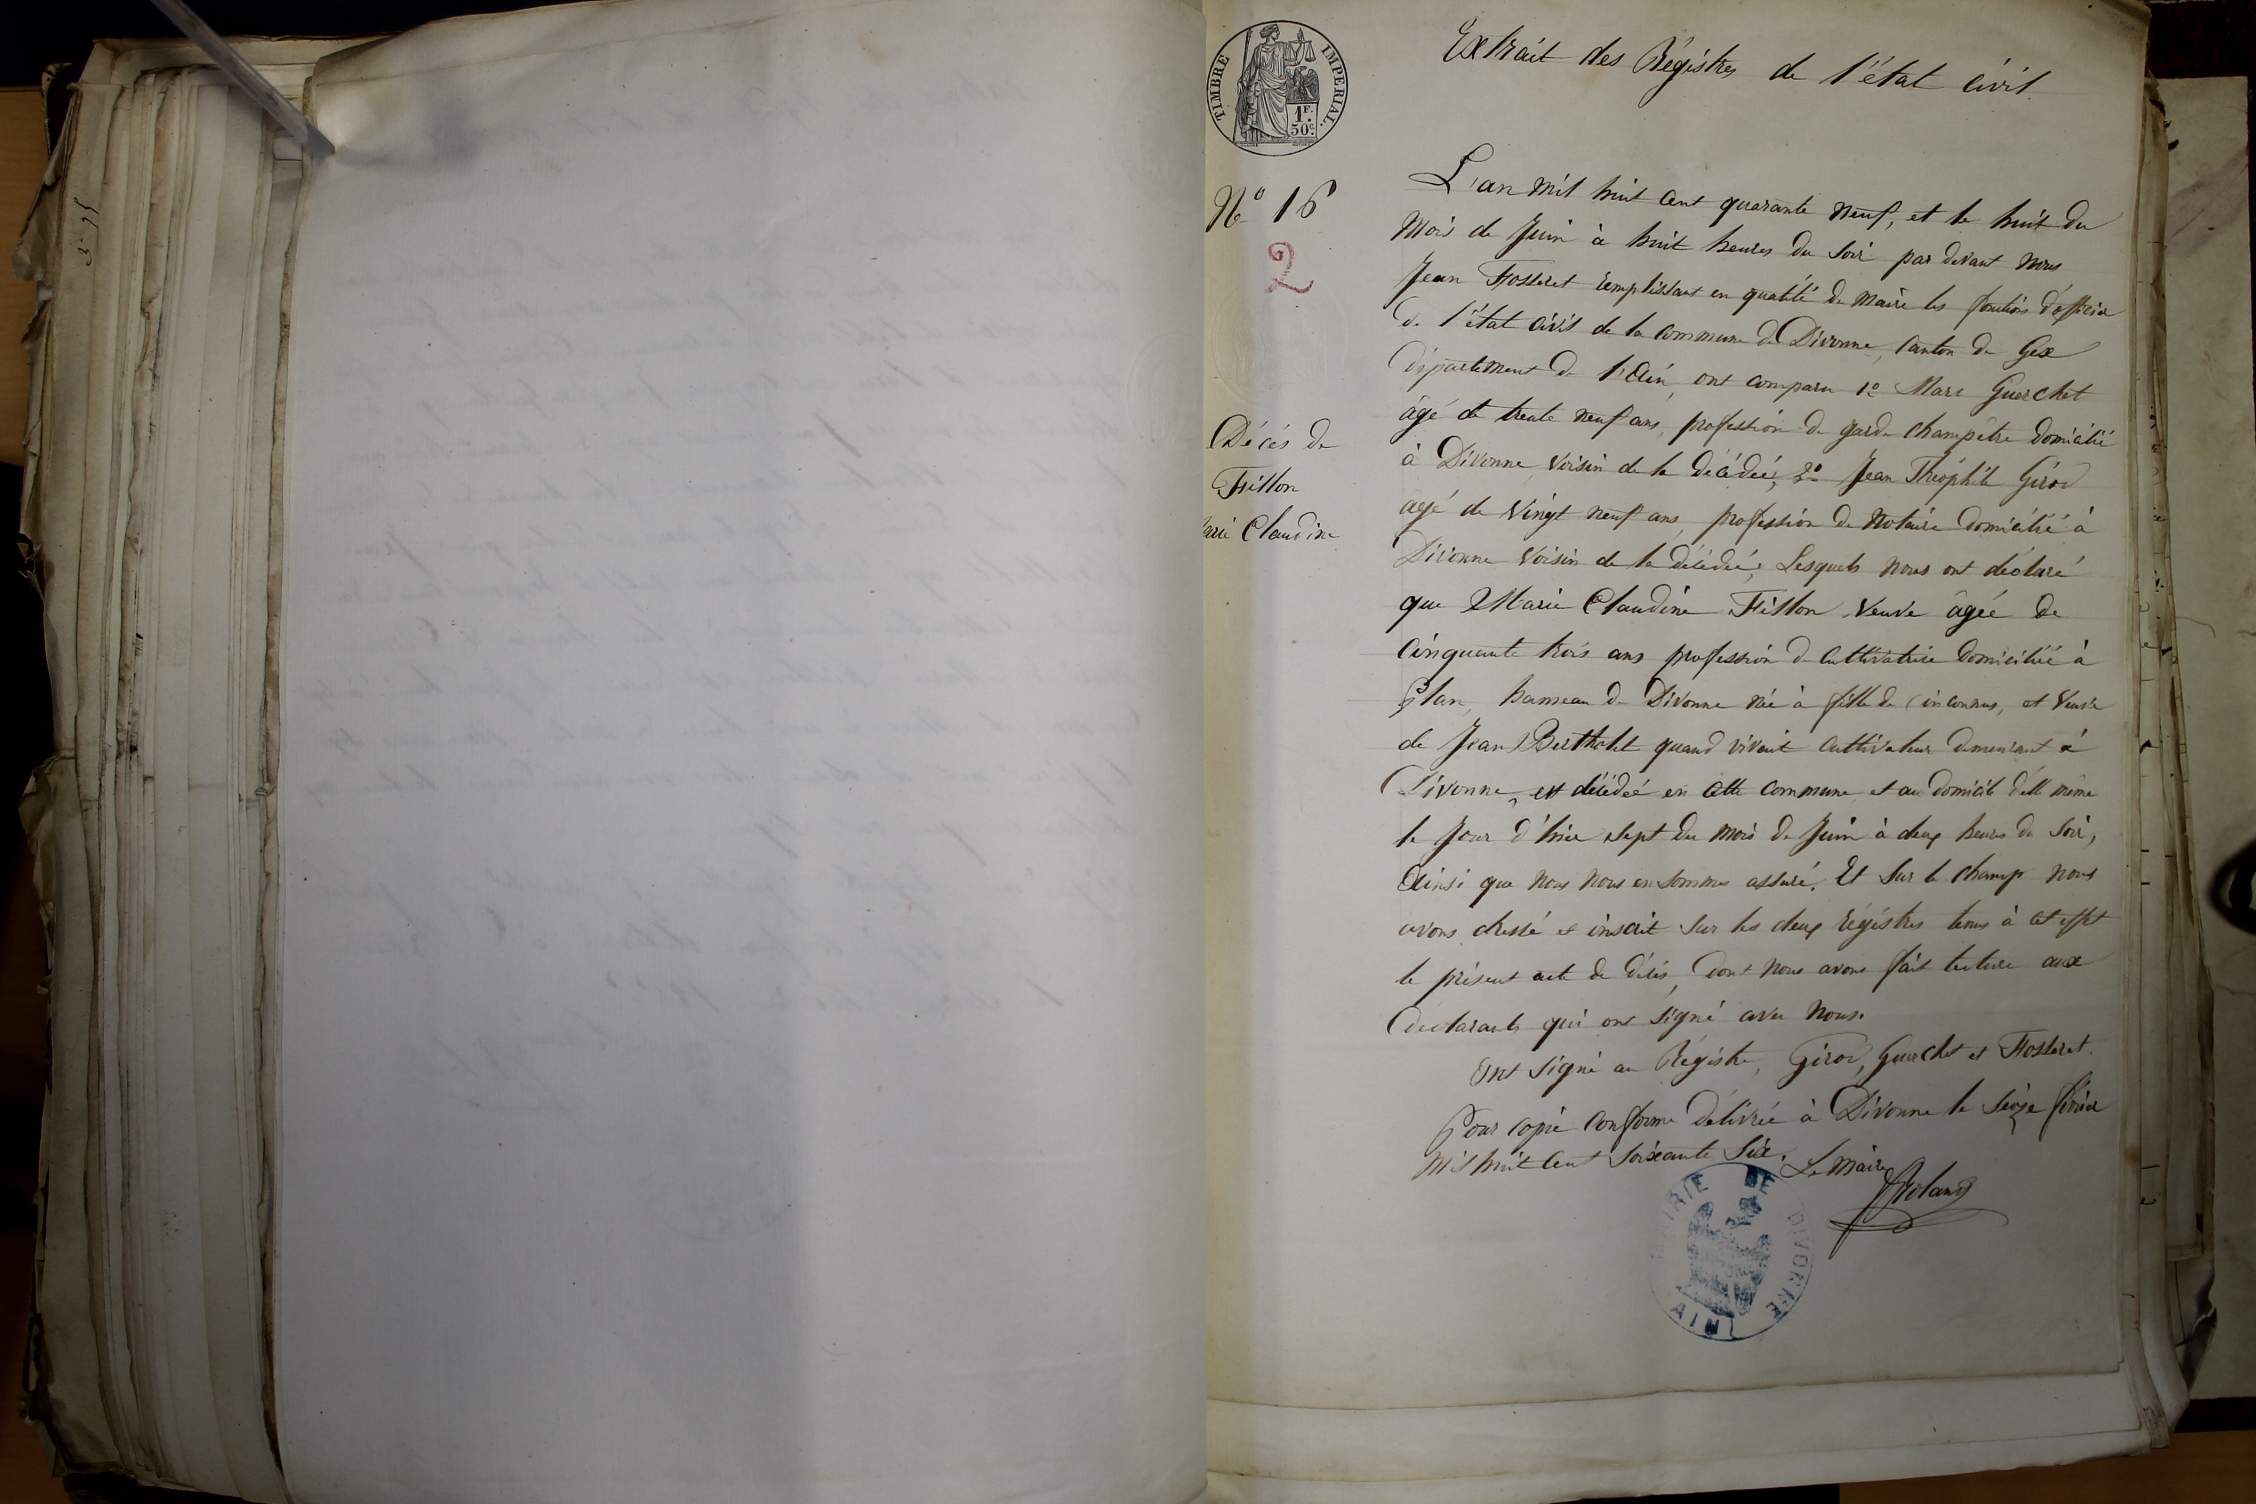 Extrait des Régistres de l'état civil.
TIMBRE IMPERIAL.
1F. 50c.
No 16
2
Décès de
Fillon
arie Claudine
L'an mil huit cent quarante neuf, et le huit du
mois de Juin à huit heures du soir par devant nous
Jean Fosseret remplissant en qualité de maire les fonctions d'officier
de l'état civil de la commune de Divonne, canton de Gex
département de l'Ain, ont comparu 1o Marc Guerchet
âgé de trente neuf ans, profession de garde champêtre domicilié
à Divonne, voisin de la décédée, 2o Jean Théophile Girod
agé de vingt neuf ans, profession de notaire domicilié à
Divonne voisin de la décédée; Lesquels nous ont déclaré
que Marie Claudine Fillon veuve âgée de
cinquante trois ans profession de cultivatrice domiciliée à
Plan, hameau de Divonne née à fille de (inconnus, et veuve
de Jean Bertholet quand vivait cultivateur demeurant à
Divonne, est décédée en cette commune et au domicile d'elle même
le jour d'hier sept du mois de Juin à deux heures du soir,
Ainsi que nous nous en sommes assuré. Et sur le champ nous
avons dressé et inscrit sur les deux régistres tenus à cet effet
le présent acte de décès, dont nous avons fait lecture aux
déclarants qui ont signé avec nous.
Ont signé au Régistre, Girod, Guerchet et Fosseret.
Pour copie conforme délivrée à Divonne le seize février
mil huit cent soixante six. Le Maire
Roland
MAIRIE DE DIVONNE
AIN